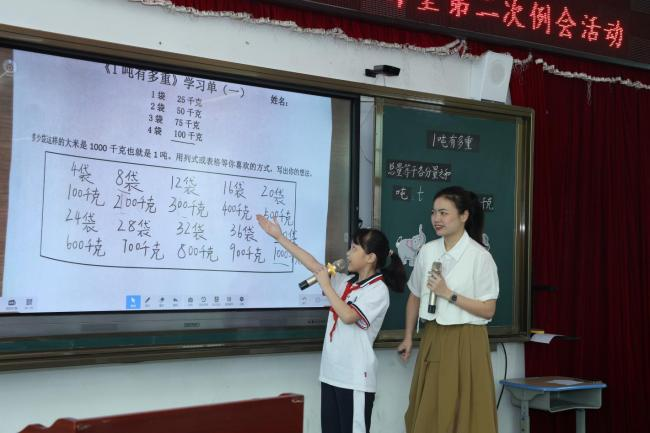 室第二次例会活动
《1吨有多重》学习单（一）
姓名：
1袋 25千克
2袋 50千克
3袋 75千克
4袋 100千克
多少袋这样的大米是1000千克也就是1吨。用列式或表格等你喜欢的方式，写出你的想法。
4袋 8袋 12袋 16袋 20袋
100千克 200千克 300千克 400千克 500千克
24袋 28袋 32袋 36袋
600千克 700千克 800千克 900千克 1000千克
1吨有多重
总量等于各分量之和
吨 t 千克